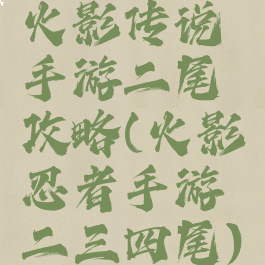 火影传说
手游二尾
攻略(火影
忍者手游
二三四尾)